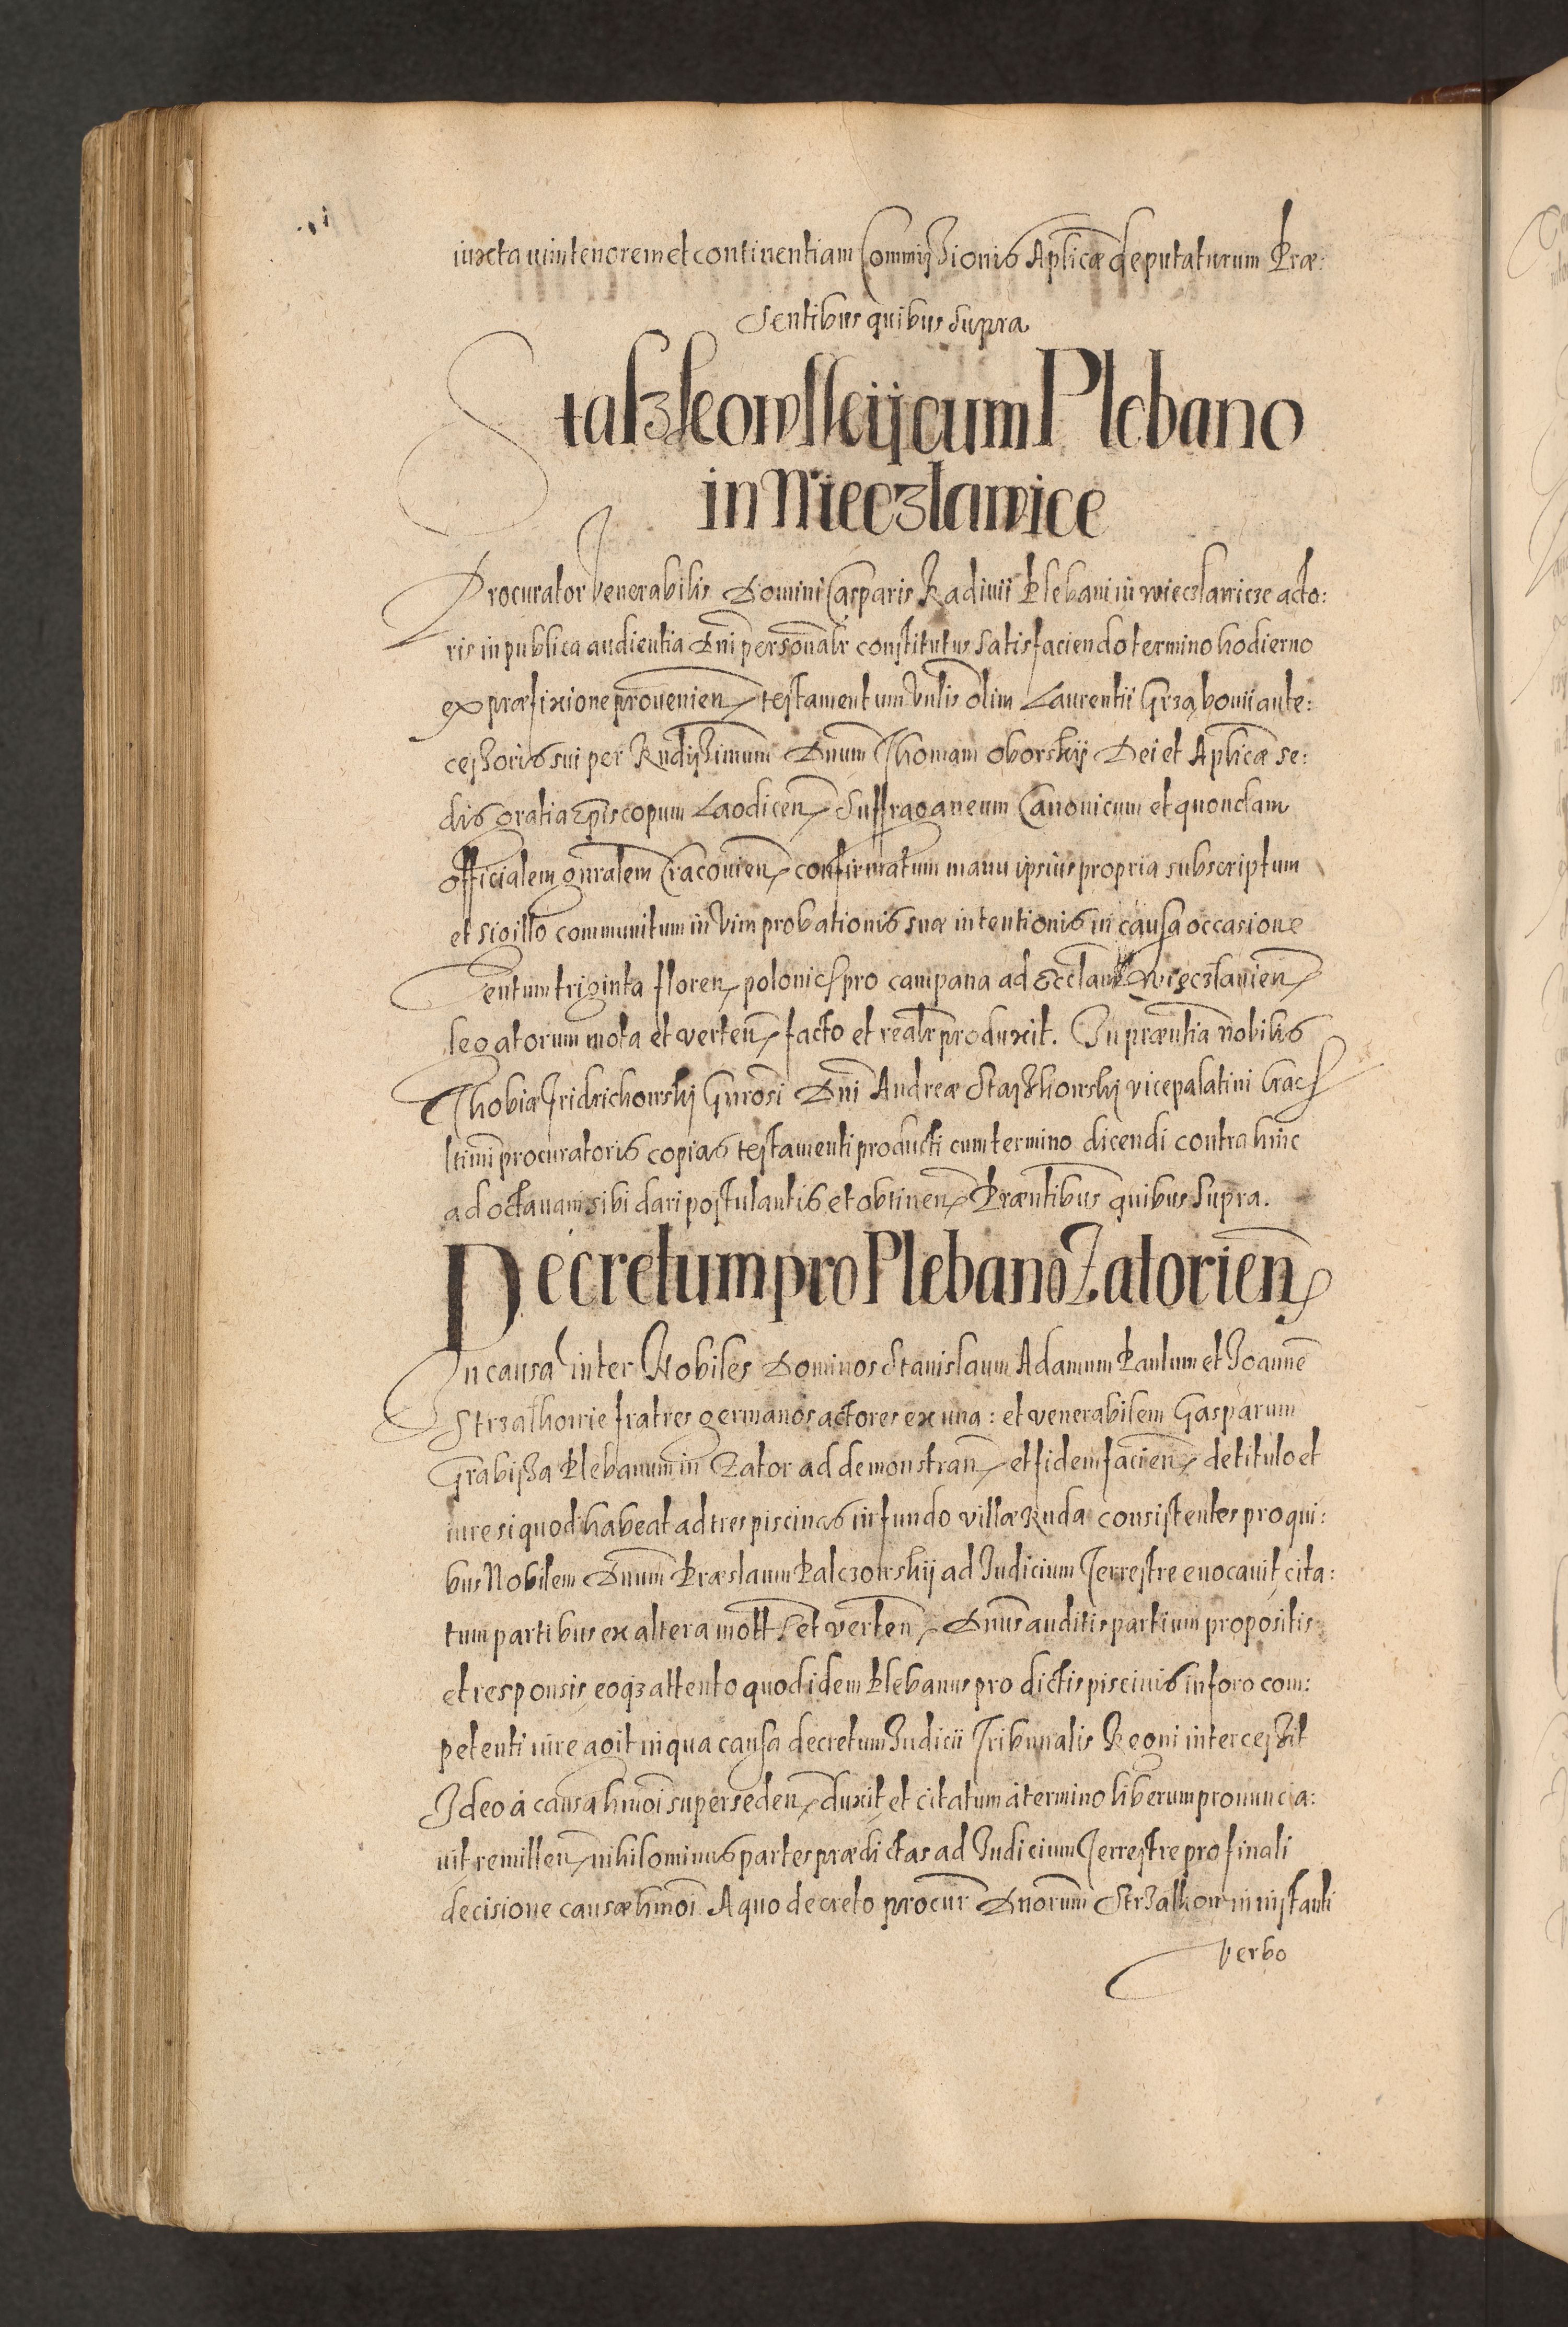 iuxta vim tenorem et continentiam Commissionis Aplicæ deputaturum Præ:
sentibus quibus supra
Staszkowskij cum Plebano
in Wieczlawice
Procurator Venerabilis Domini Casparis Radinii Plebani in Wieczlawicze acto:
ris in publica audientia Dni personalr constitutus satisfaciendo termino hodierno
ex præfixione prouenien testamentum Vnlis olim Laurentii Grząbonii ante:
cessoris sui per Rndissimum Dnum Thomam Oborskij Dei et Aplicæ se:
dis gratia Episcopum Laodicen Suffraganeum Canonicum et quondam
officialem gnralem Cracouien confirmatum manu ipsius propria subscriptum
et sigillo communitum in Vim probationis suæ intentionis in causa occasione
Centum triginta floren polonic pro campana ad Ecclam Wieczlauien
legatorum mota et verten facto et realr produxit. In præntia nobilis
Thobiæ Fridrichowskj Gnrosi Dni Andreæ Staszkowskj vicepalatini Crac
ltimi procuratoris copias testamenti producti cum termino dicendi contra hinc
ad octauam sibi dari postulantis et obtinen Præntibus quibus supra.
Decretum pro Plebano Zatorien
In causa inter Nobiles Dominos Stanislaum Adamum Paulum et Joannē
Strzalkowie fratres germanos actores ex una: et venerabilem Gasparum
Grabissa Plebanum in Zator ad demonstran et fidem facien de titulo et
iure si quod habeat ad tres piscinas in fundo villæ Ruda consistentes pro qui:
bus Nobilem Dnum Præslaum Palczowskij ad Judicium Terrestre euocauit cita:
tum partibus ex altera mott et verten Dnus auditis partium propositis
et responsis eoqȝ attento quod idem Plebanus pro dictis piscinis in foro com:
petenti iure agit in qua causa decretum Judicii Tribunalis Regni intercessit
Ideo à causa hmoi superseden duxit et citatum à termino liberum pronuncia:
uit remitten nihilominus partes prædictas ad Judicium Terrestre pro finali
decisione causæ hmoi A quo decreto procur Dnorum Strzalkow in instanti
verbo